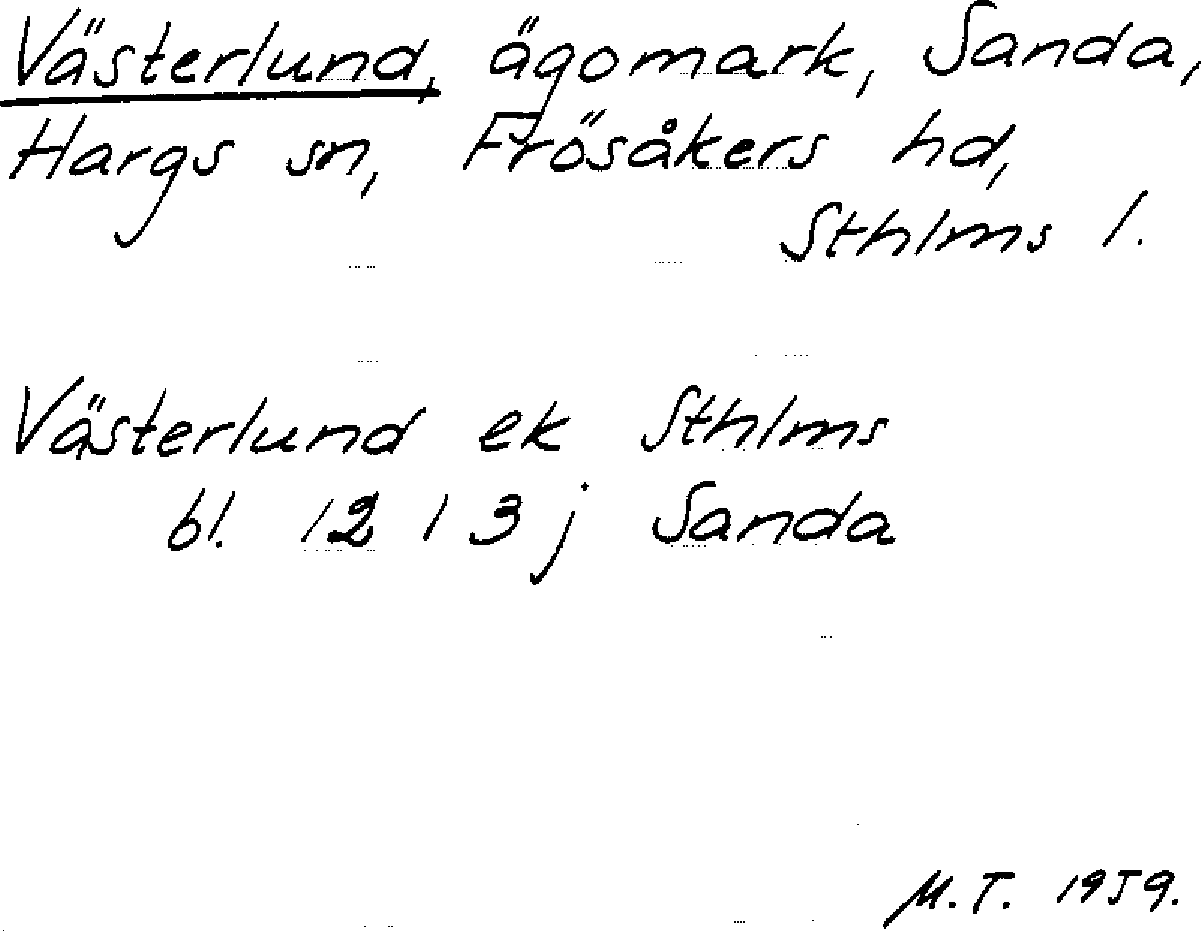 Västerlund, ägomark, Sanda,
Hargs sn, Frösåkers hd,
Sthlms l.
Västerlund ek Sthlms
bl. 12 1 3 j Sanda
M.T. 1959.